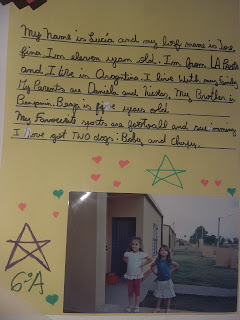 My name is Lucía and my last name is Jose
finez. I'm eleven years old. I'm from LA Plata
and I live in Argentina. I live with my family
My Parents are Daniela and Nestor. My Brother is
Benjamin. Benja is five years old.
My Favourite sports are football and swimming
I love got TWO dogs: Baby and Chufy.
6°A